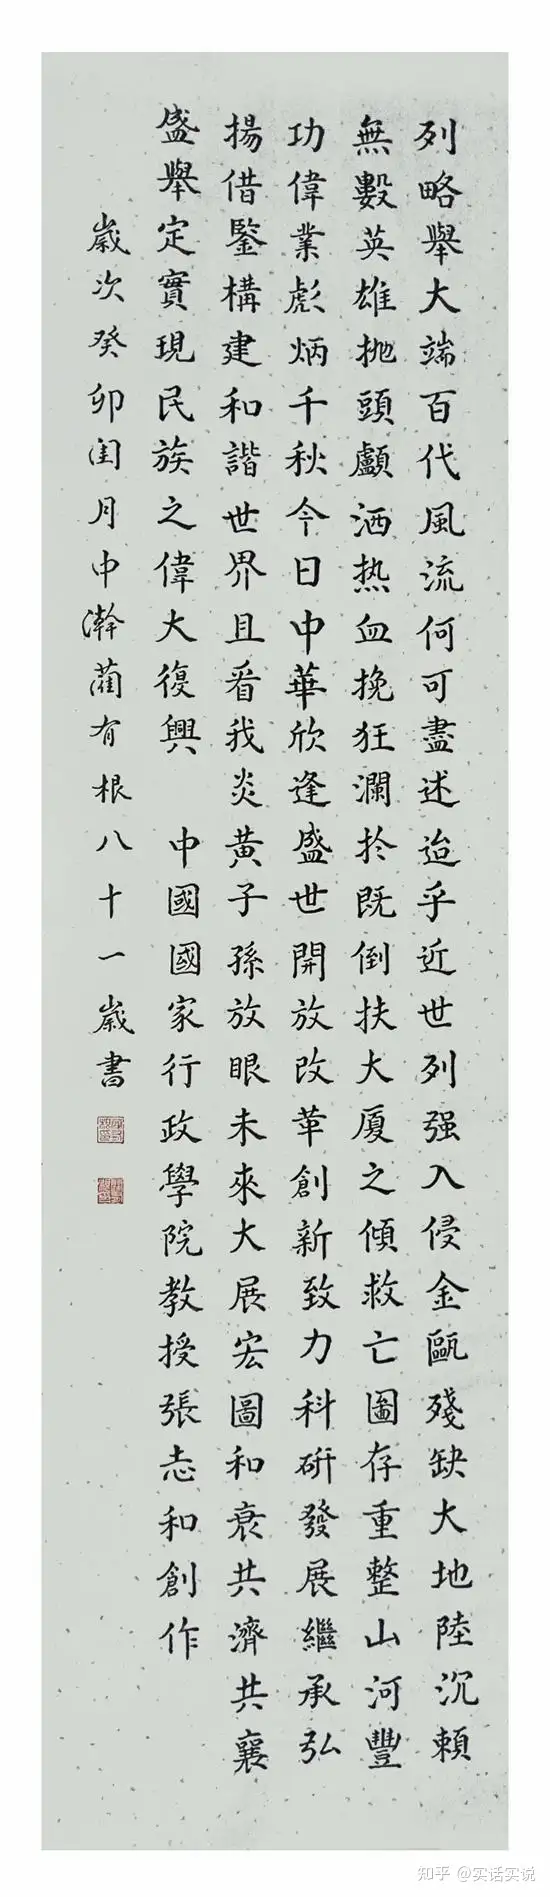 列略舉大端百代風流何可盡述迨乎近世列强入侵金甌殘缺大地陸沉賴
無數英雄抛頭顱洒热血挽狂瀾於既倒扶大厦之傾救亡圖存重整山河豐
功偉業彪炳千秋今日中華欣逢盛世開放改革創新致力科研發展繼承弘
揚借鑒構建和諧世界且看我炎黄子孫放眼未來大展宏圖和衷共濟共襄
盛舉定實現民族之偉大復興 中國國家行政學院教授張志和創作
歲次癸卯闰月中澣藺有根八十一歲書
知乎 @实话实说